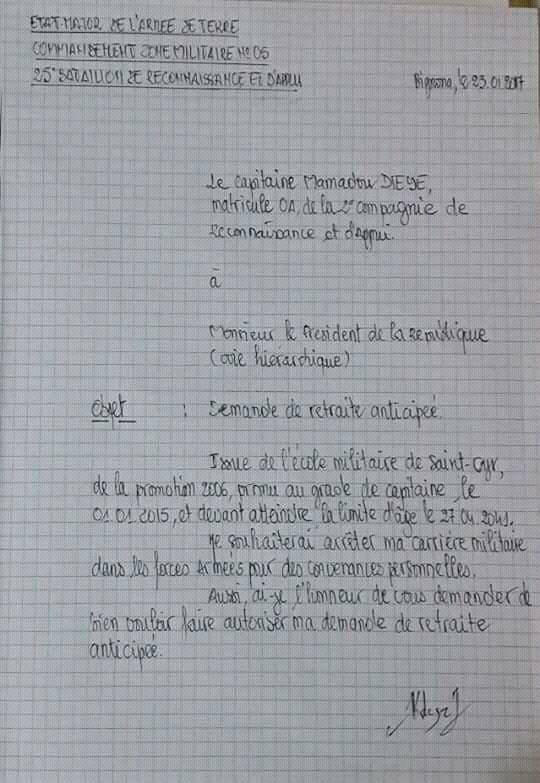 ETAT-MAJOR DE L'ARMEE DE TERRE
COMMANDEMENT ZONE MILITAIRE N° 05
25e BATAILLON DE RECONNAISSANCE ET D'APPUI
Bignona, le 23.01.2017
Le capitaine Mamadou DIEYE,
matricule OA, de la 2e compagnie de
reconnaissance et d'Appui.
à
Monsieur le Président de la République
(voie hiérarchique)
Objet : Demande de retraite anticipée.
Issue de l'école militaire de Saint-Cyr,
de la promotion 2006, promu au grade de capitaine, le
01.01.2015, et devant atteindre la limite d'âge le 27.04.2041.
Je souhaiterai arrêter ma carrière militaire
dans les forces Armées pour des convenances personnelles.
Aussi, ai-je l'honneur de vous demander de
bien vouloir faire autoriser ma demande de retraite
anticipée.